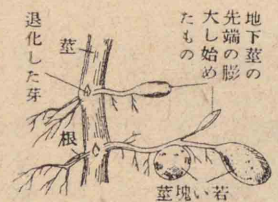 地下茎の
先端の膨
大し始め
たもの
茎
退化した芽
根
若い塊茎